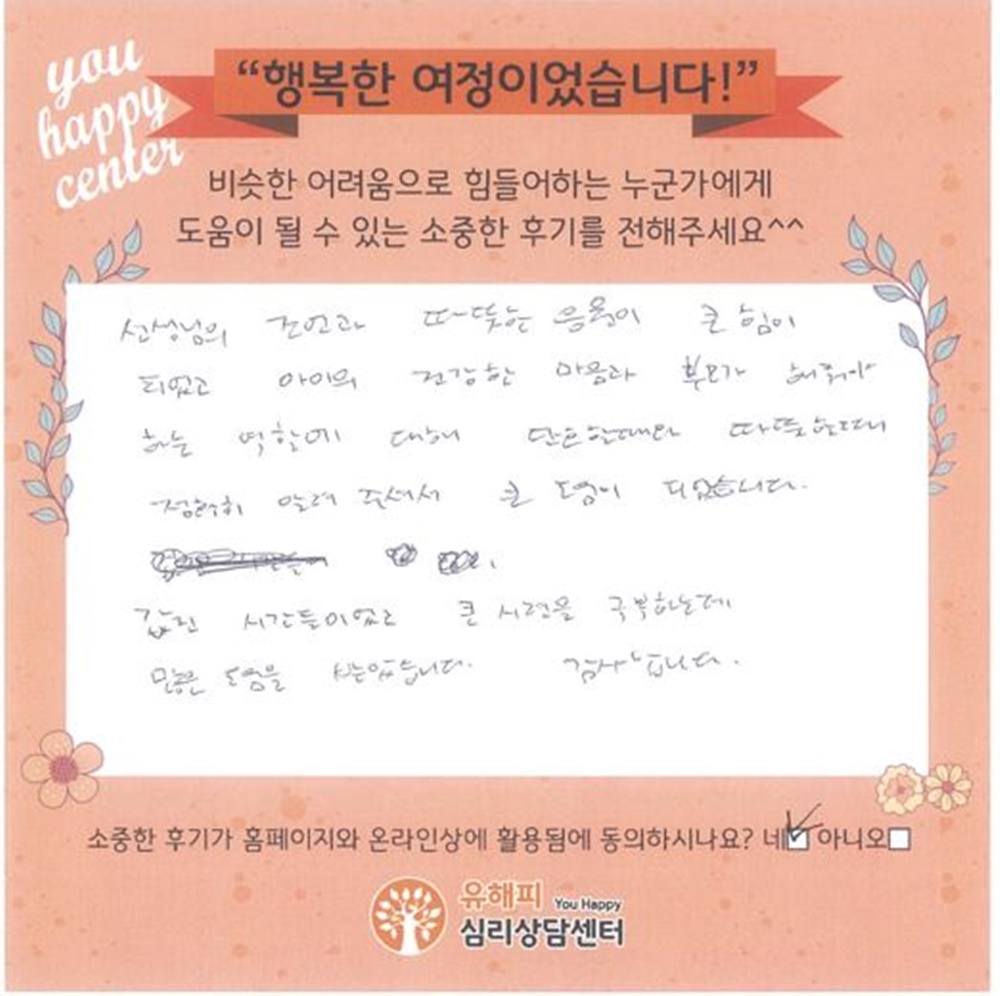 you
happy
center
“행복한 여정이었습니다!”
비슷한 어려움으로 힘들어하는 누군가에게
도움이 될 수 있는 소중한 후기를 전해주세요^^
선생님의 조언과 따뜻한 응원이 큰 힘이
되었고 아이의 건강한 마음과 부모가 해줘야
하는 역할에 대해 단호할때와 따뜻한때
정확히 알려 주셔서 큰 도움이 되었습니다.
값진 시간들이었고 큰 시련을 극복하는데
많은 도움을 받았습니다. 감사합니다.
소중한 후기가 홈페이지와 온라인상에 활용됨에 동의하시나요? 네 아니오
유해피 You Happy
심리상담센터